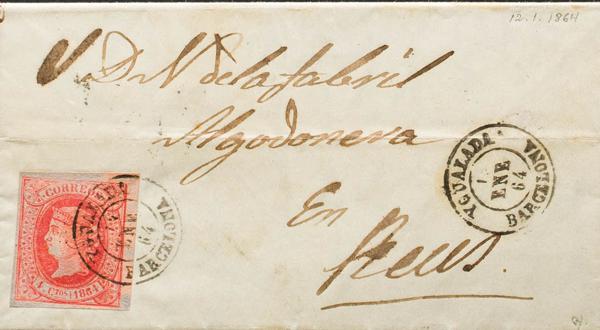 12.1.1864
D. N de la fabril
Algodonera
En
Reus.
YGUALADA
ENE
64
BARCELONA
CORREOS
4 CTOS 1864
YGUALADA
ENE
64
BARCELONA